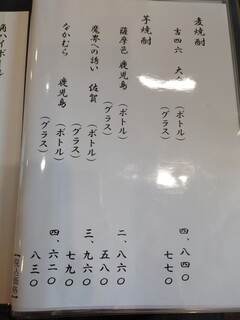 麦焼酎
吉四六 大 (ボトル) 四、八四〇
(グラス) 七七〇
芋焼酎
薩摩邑 鹿児島 (ボトル) 二、八六〇
(グラス) 五八〇
魔界への誘い 佐賀 (ボトル) 三、九六〇
(グラス) 七九〇
なかむら 鹿児島 (ボトル) 四、六二〇
(グラス) 八三〇
【税込価格】
角ハイボール